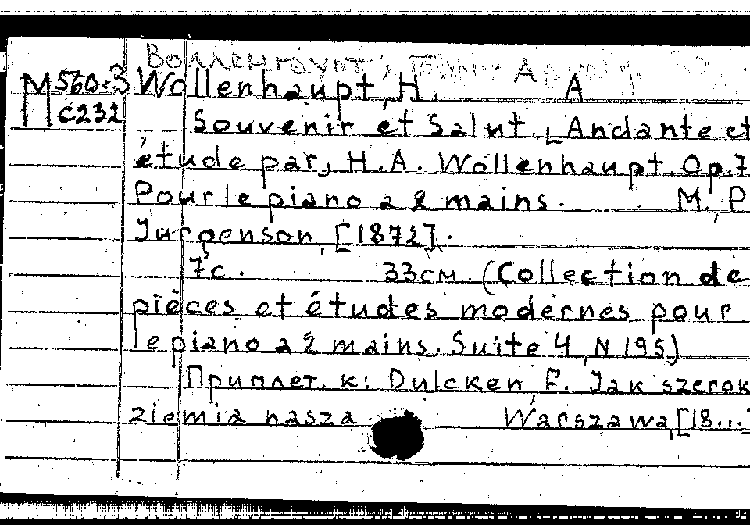 Волленгаупт,
M 560-3 Wollenhaupt, H. A
C232
Souvenir et Salut. [Andante et
étude par, H.A. Wollenhaupt. Op.7
Pour le piano a 2 mains. M., P.
Jurgenson, [1872].
7с. 33см. (Collection de
pièces et études modernes pour
le piano a 2 mains. Suite 4, N 195)
Приплет. к: Dulcken, F. Jak szerok
ziemia nasza Warszawa, [18...